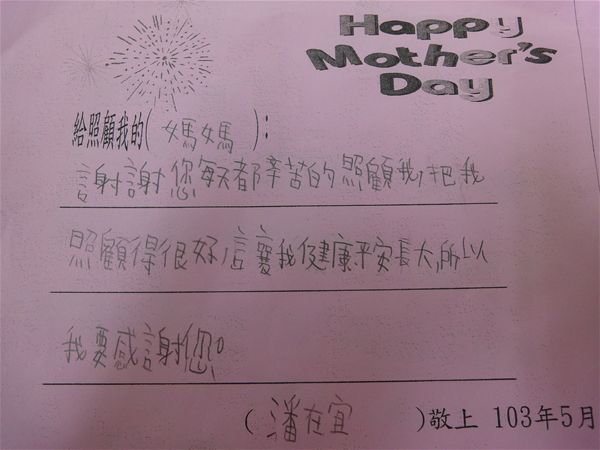 Happy
Mother's
Day
給照顧我的(媽媽):
謝謝您每天都辛苦的照顧我,把我
照顧得很好,讓我健康平安長大,所以
我要感謝您。
(潘在宜)敬上 103年5月